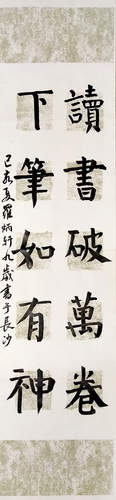 讀書破萬卷
下筆如有神
己亥夏羅炳軒九歲書于長沙